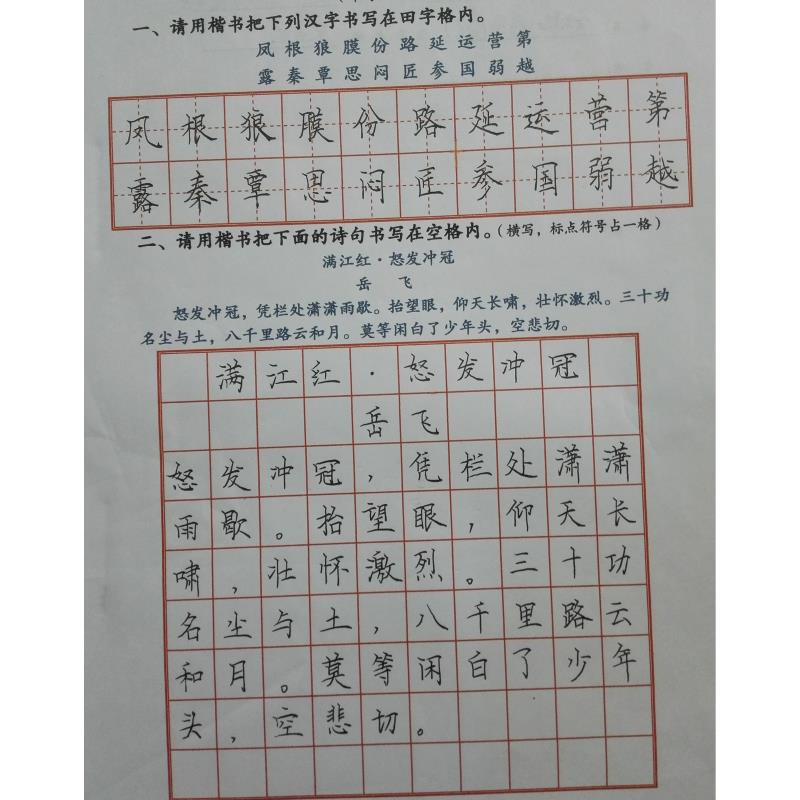 一、请用楷书把下列汉字书写在田字格内。
凤 根 狼 膜 份 路 延 运 营 第
露 秦 覃 思 闷 匠 参 国 弱 越
凤 根 狼 膜 份 路 延 运 营 第
露 秦 覃 思 闷 匠 参 国 弱 越
二、请用楷书把下面的诗句书写在空格内。(横写，标点符号占一格)
满江红·怒发冲冠
岳 飞
怒发冲冠，凭栏处潇潇雨歇。抬望眼，仰天长啸，壮怀激烈。三十功
名尘与土，八千里路云和月。莫等闲白了少年头，空悲切。
满江红·怒发冲冠
岳飞
怒发冲冠，凭栏处潇潇
雨歇。抬望眼，仰天长
啸，壮怀激烈。三十功
名尘与土，八千里路云
和月。莫等闲白了少年
头，空悲切。